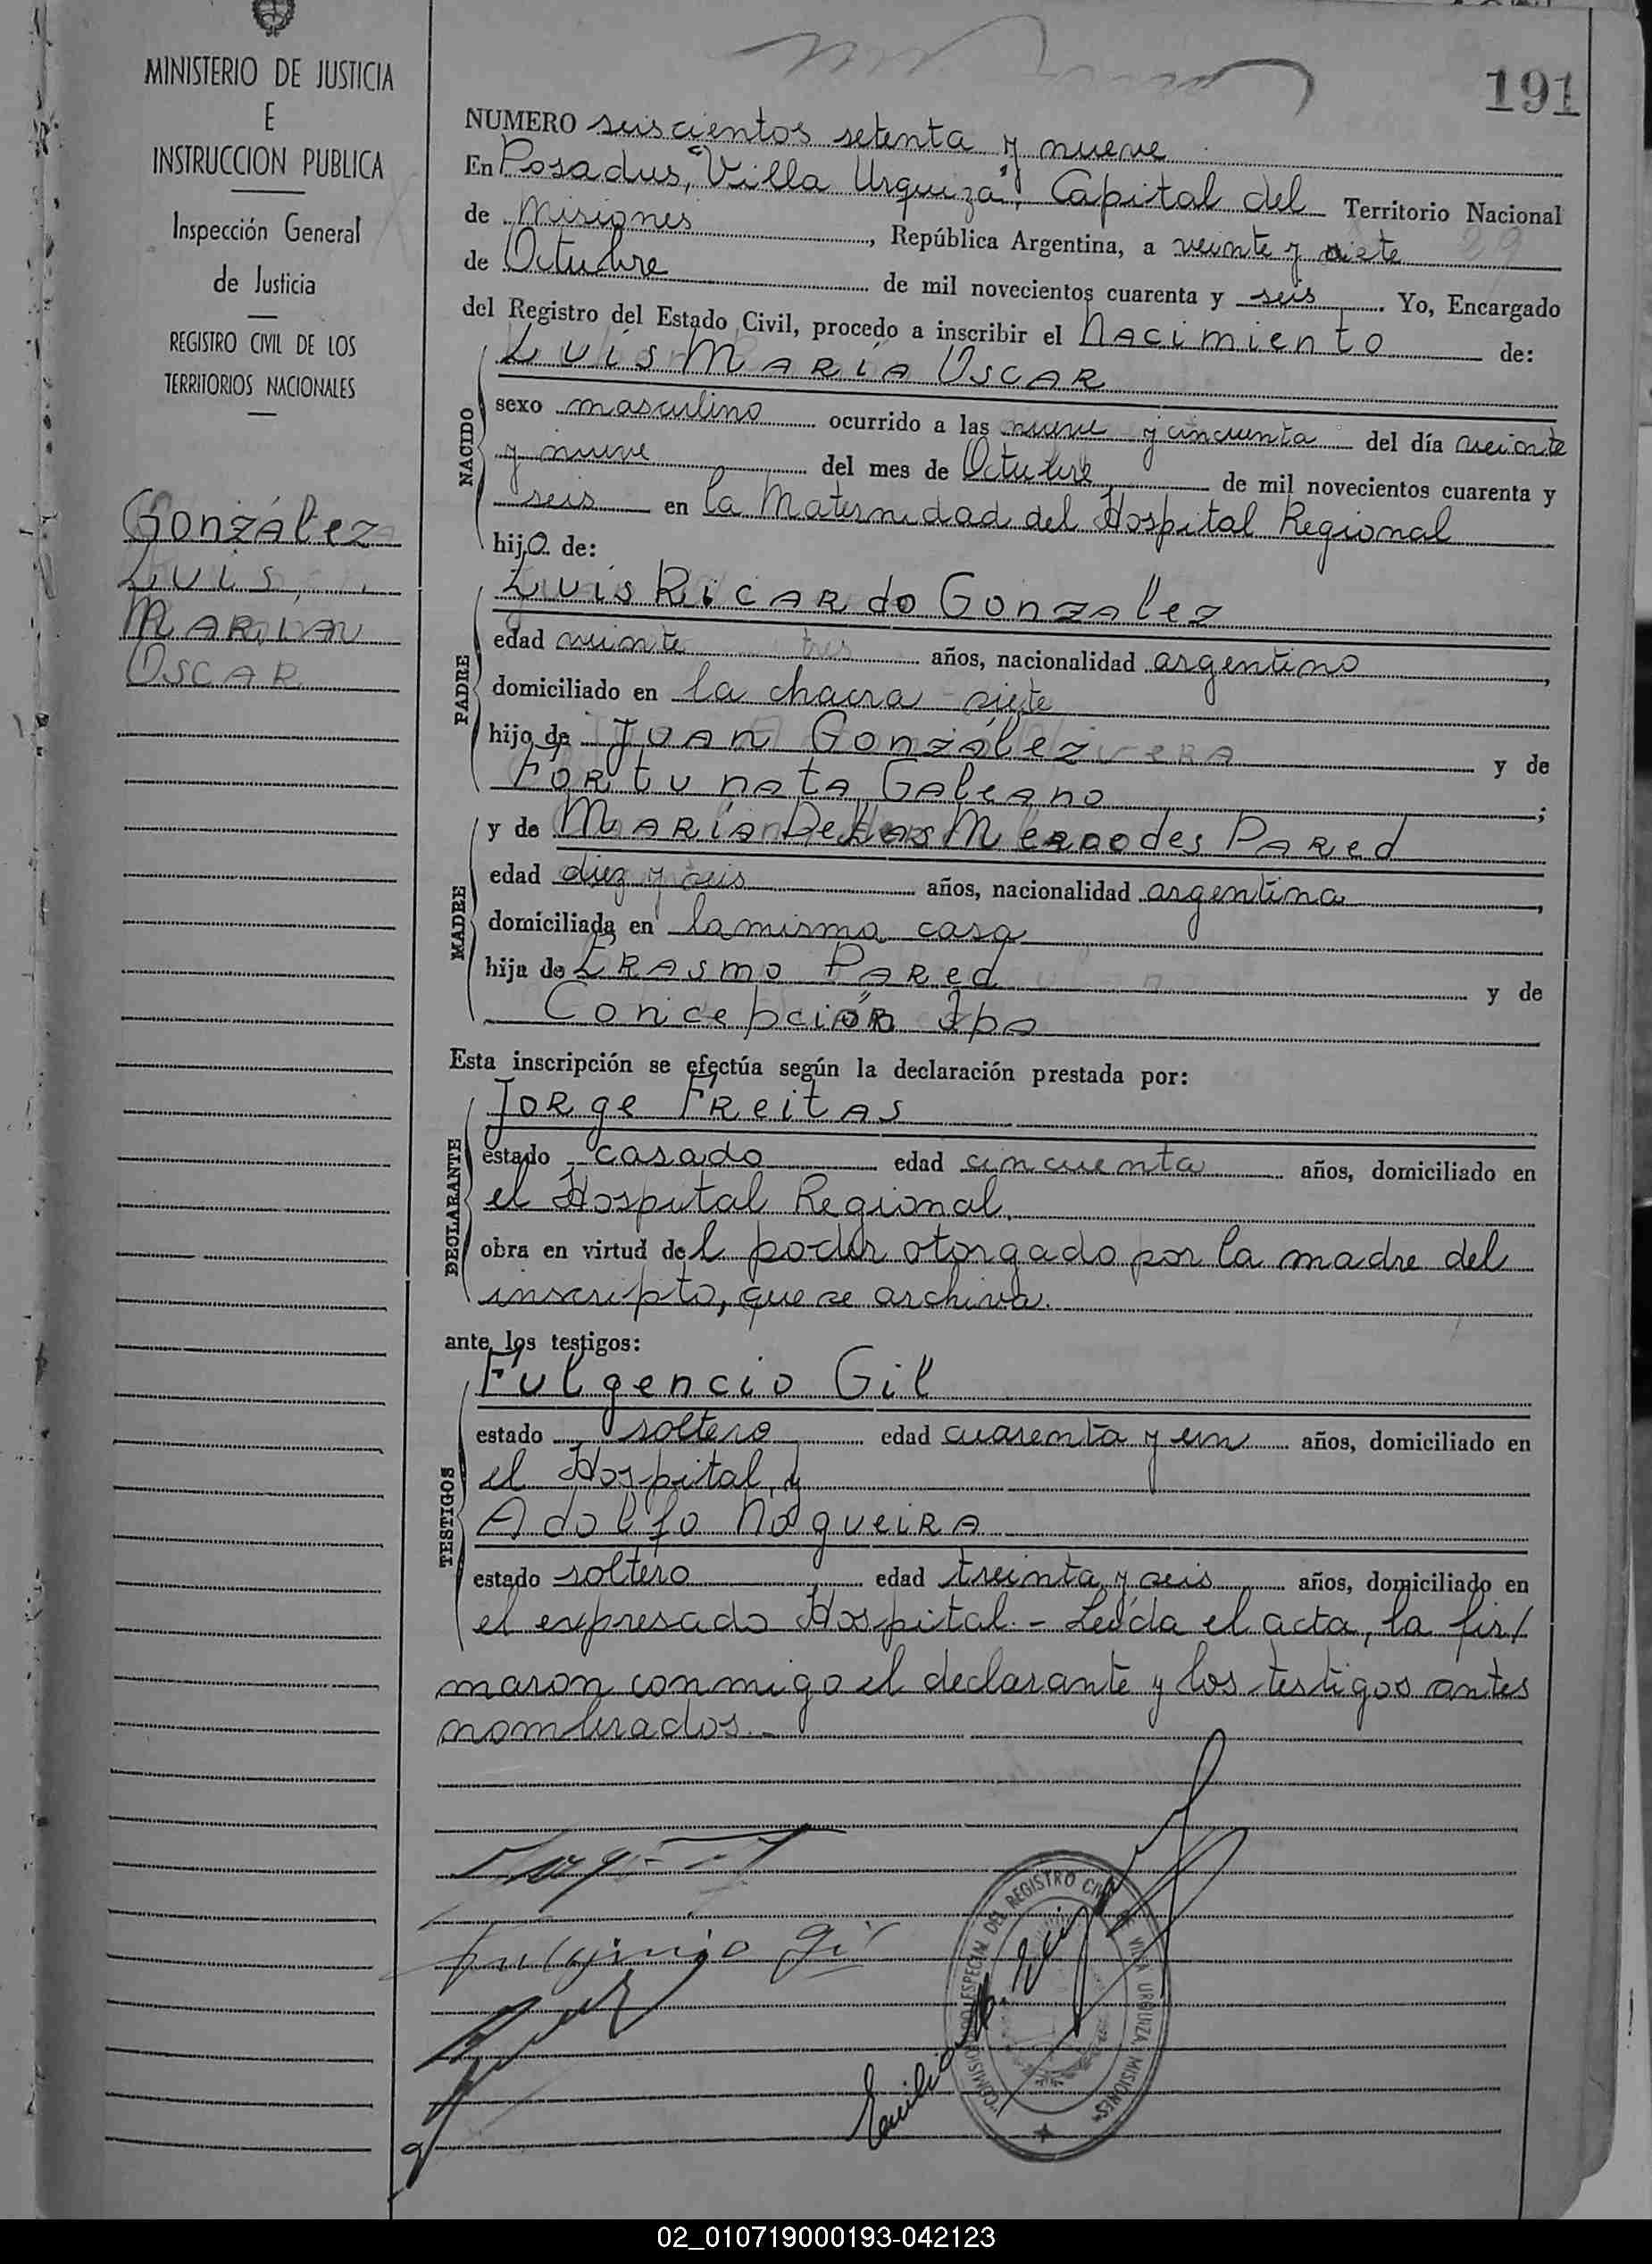 191
MINISTERIO DE JUSTICIA
E
INSTRUCCION PUBLICA
Inspección General
de Justicia
REGISTRO CIVIL DE LOS
TERRITORIOS NACIONALES
González
Luis
Oscar
NUMERO seiscientos setenta y nueve
En Posadas, "Villa Urquiza", Capital del Territorio Nacional
de Misiones, República Argentina, a veinte y siete
de Octubre de mil novecientos cuarenta y seis. Yo, Encargado
del Registro del Estado Civil, procedo a inscribir el Nacimiento de:
Luis María Oscar
NACIDO
sexo masculino ocurrido a las nueve y cincuenta del día veinte
y nueve del mes de Octubre de mil novecientos cuarenta y
seis en la Maternidad del Hospital Regional
hijo de:
Luis Ricardo Gonzalez
PADRE
edad veinte tres años, nacionalidad argentino,
domiciliado en la chacra siete
hijo de Juan González y de
Fortunata Galeano;
y de María De Las Mercedes Pared
MADRE
edad diez y seis años, nacionalidad argentina,
domiciliada en la misma casa
hija de Erasmo Pared y de
Concepción
Esta inscripción se efectúa según la declaración prestada por:
Jorge Freitas
DECLARANTE
estado casado edad cincuenta años, domiciliado en
el Hospital Regional.
obra en virtud del poder otorgado por la madre del
inscripto, que se archiva.
ante los testigos:
Fulgencio Gil
TESTIGOS
estado soltero edad cuarenta y un años, domiciliado en
el Hospital, y
Adolfo Nogueira
estado soltero edad treinta y seis años, domiciliado en
el expresado Hospital.- Leída el acta, la fir/
maron conmigo el declarante y los testigos antes
nombrados.-
Fulgencio Gil
ESPECIAL DEL REGISTRO CIVIL VILLA URQUIZA MISIONES
Emilio
02_010719000193-042123